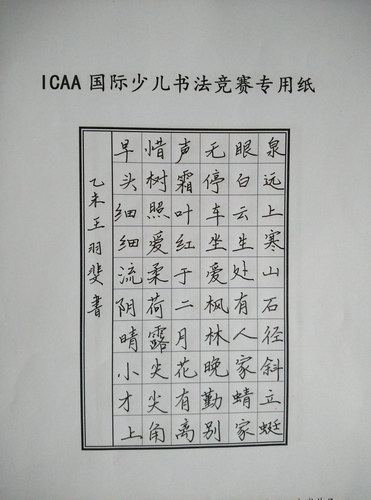 ICAA 国际少儿书法竞赛专用纸
泉远上寒山石径斜立蜓
眼白云生处有人家蜻家
无停车坐爱枫林晚勤别
声霜叶红于二月花有离
惜树照爱柔荷露尖尖角
早头细细流阴晴小才上
乙未王羽斐書